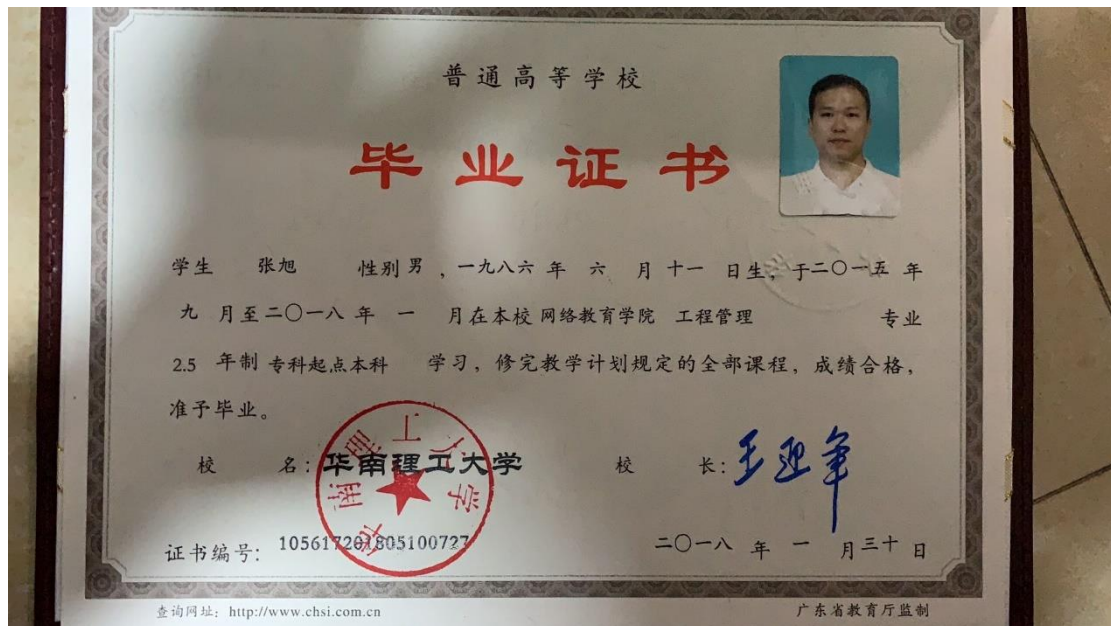 普通高等学校
毕业证书
学生 张旭 性别 男 ，一九八六 年 六 月 十一 日生，于二〇一五 年
九 月至 二〇一八 年 一 月在本校 网络教育学院 工程管理 专业
2.5 年制 专科起点本科 学习，修完教学计划规定的全部课程，成绩合格，
准予毕业。
校 名：华南理工大学 校 长：王迎军
华南理工大学
证书编号：105617201805100727 二〇一八 年 一 月三十 日
查询网址：http://www.chsi.com.cn 广东省教育厅监制